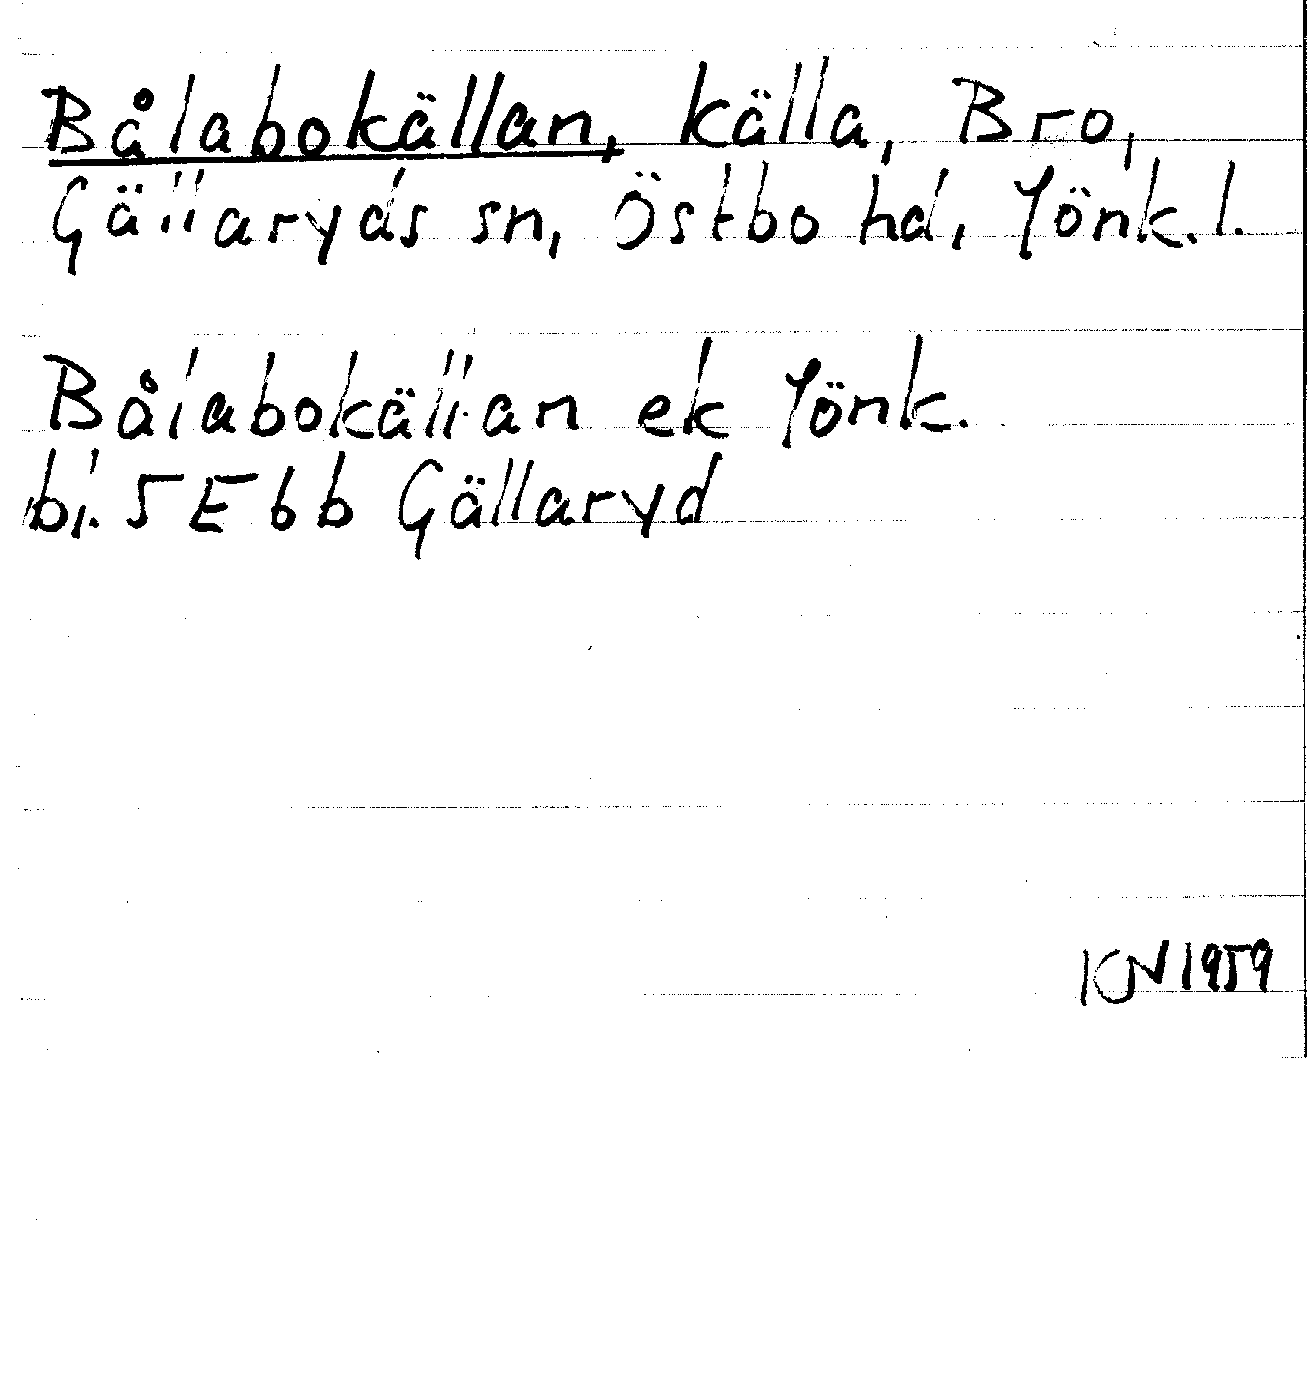 Bålabokällan, källa, Bro,
Gällaryds sn, Östbo hd, Jönk. l.
Bålabokällan ek Jönk.
bl. 5 E 6 b Gällaryd
KN 1959